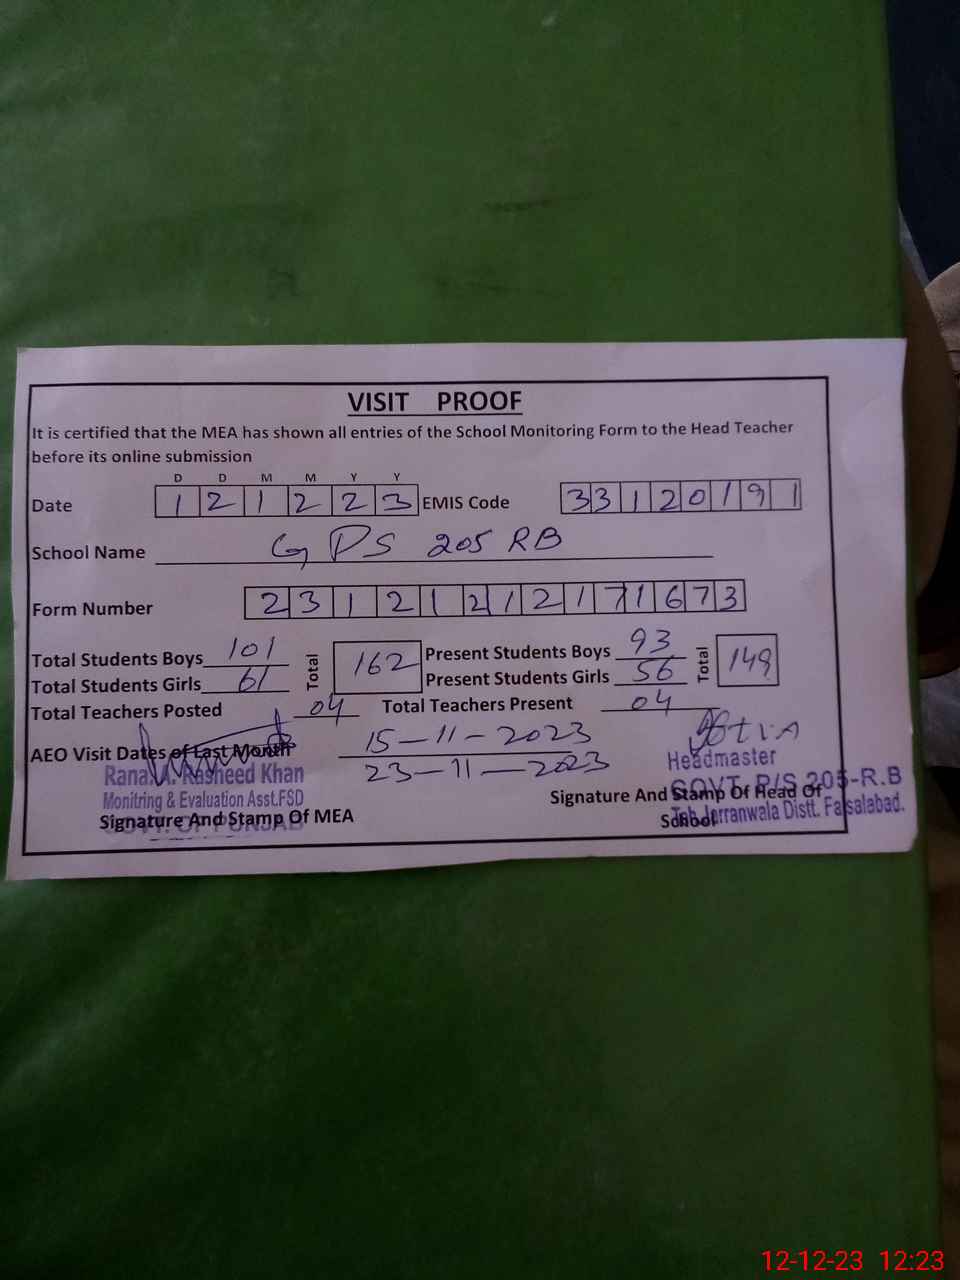 VISIT PROOF
It is certified that the MEA has shown all entries of the School Monitoring Form to the Head Teacher
before its online submission
D D M M Y Y
Date 1 2 1 2 2 3 EMIS Code 3 3 1 2 0 1 9 1
School Name GPS 205 RB
Form Number 2 3 1 2 1 2 1 2 1 7 1 6 7 3
Total Students Boys 101 Total 162 Present Students Boys 93 Total 149
Total Students Girls 61 Present Students Girls 56
Total Teachers Posted 04 Total Teachers Present 04
AEO Visit Dates of Last Month 15-11-2023
23-11-2023
Rana A. Rasheed Khan
Monitring & Evaluation Asst.FSD
GOVT. OF PUNJAB
Signature And Stamp Of MEA
Headmaster
GOVT. P/S 205-R.B
Teh Jarranwala Distt. Faisalabad.
Signature And Stamp Of Head Of
School
12-12-23 12:23